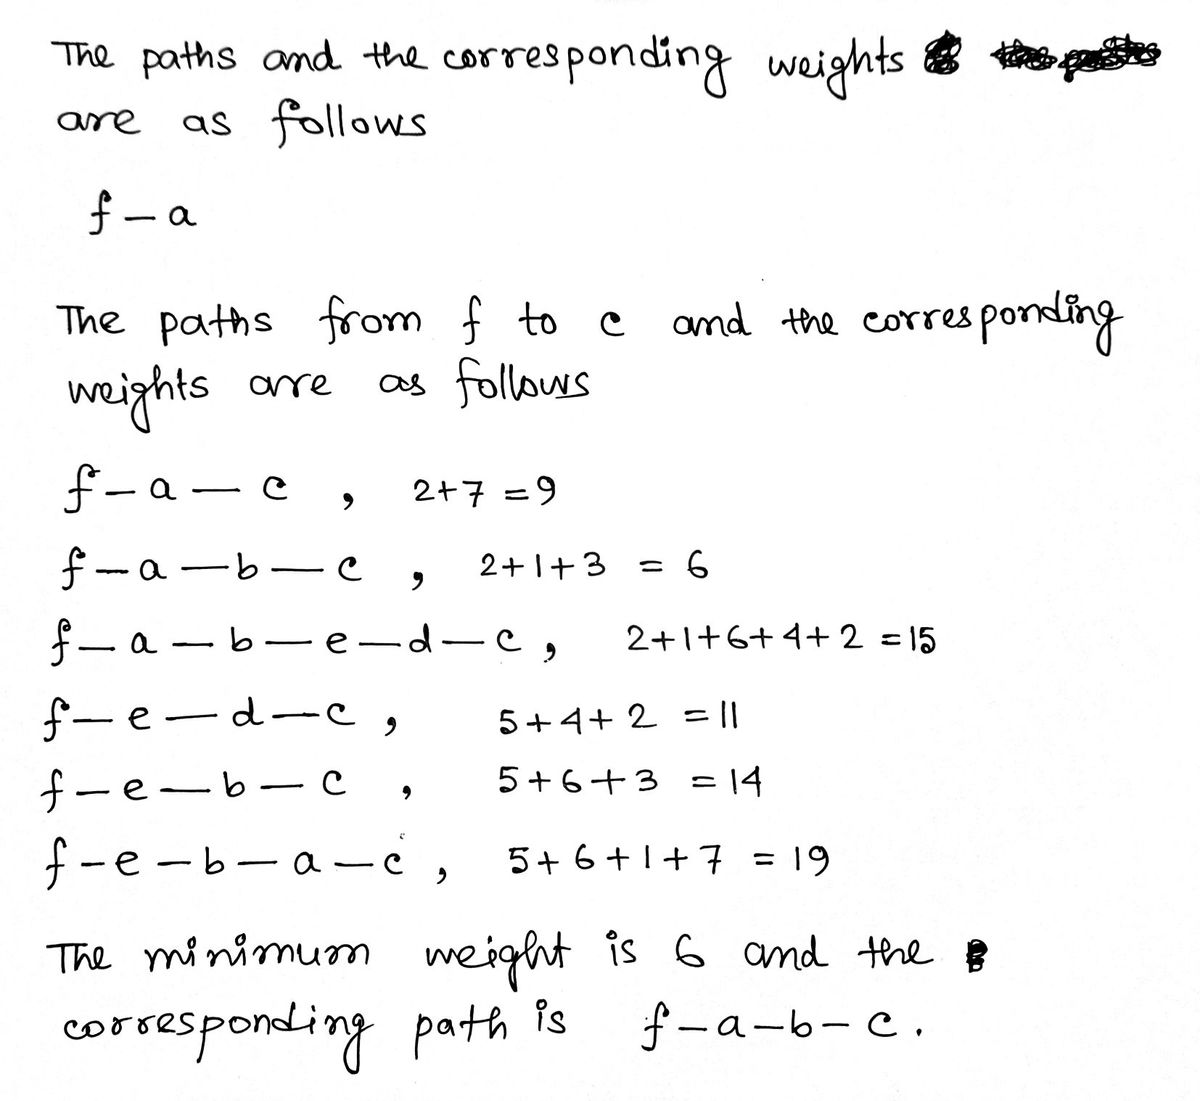 The paths and the corresponding weights
are as follows
f - a
The paths from f to c and the corresponding
weights are as follows
f - a - c , 2+7 = 9
f - a - b - c , 2+1+3 = 6
f - a - b - e - d - c , 2+1+6+4+2 = 15
f - e - d - c , 5+4+2 = 11
f - e - b - c , 5+6+3 = 14
f - e - b - a - c , 5+6+1+7 = 19
The minimum weight is 6 and the
corresponding path is f - a - b - c .